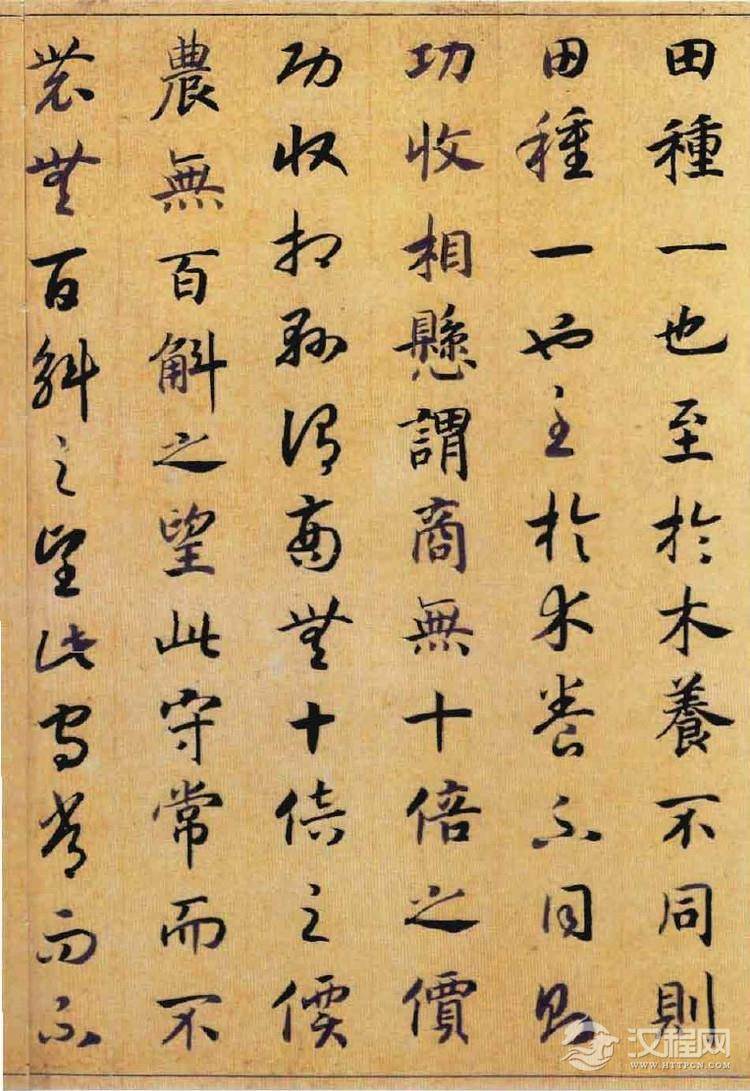 田種一也至於木養不同則
田種一也至於木養不同則
功收相懸謂商無十倍之價
功收相懸謂商無十倍之價
農無百斛之望此守常而不
農無百斛之望此守常而不
汉程网
WWW.HTTPCN.COM